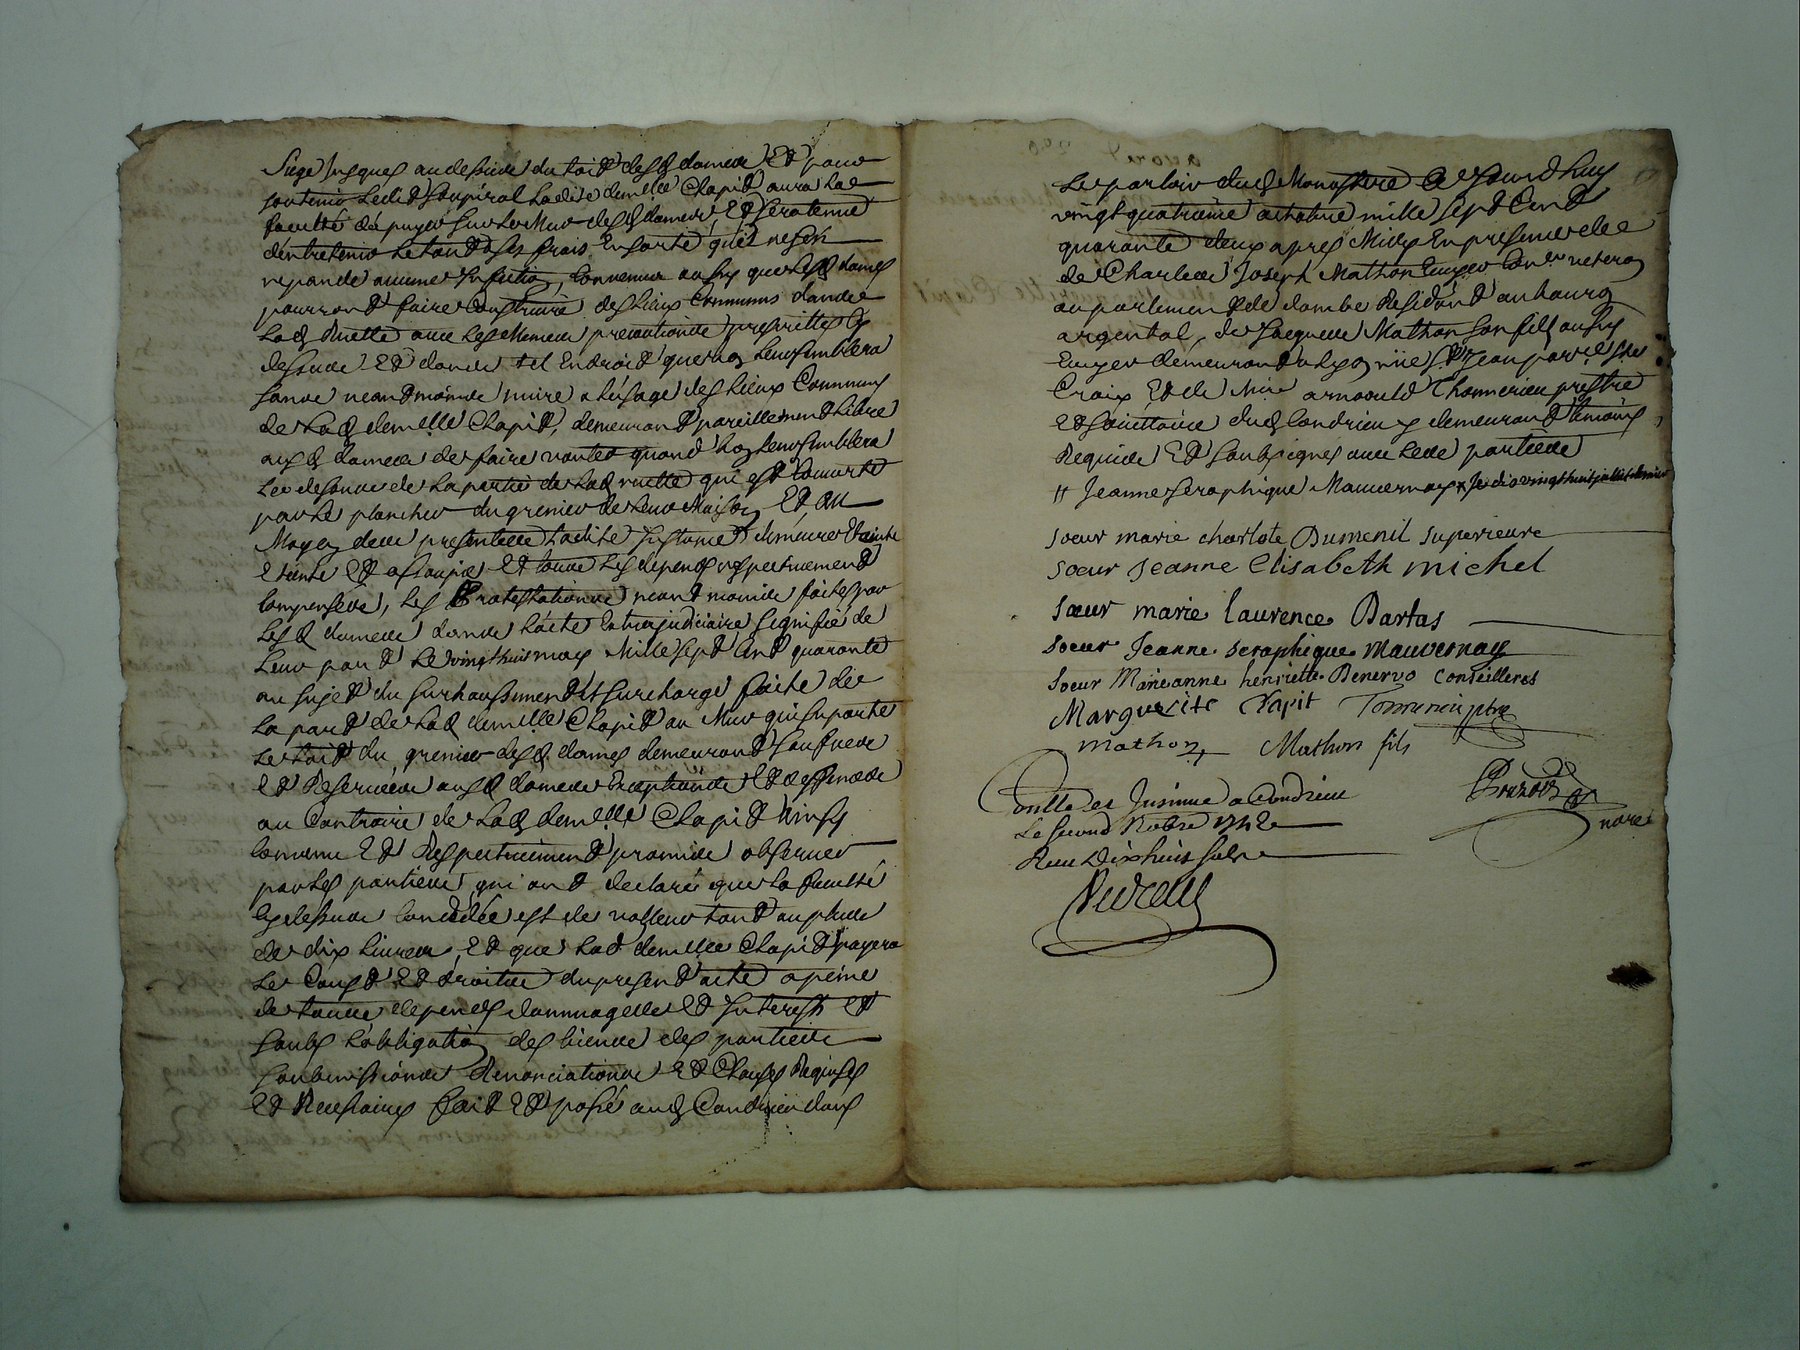 Siege jusques au dessus du toit desd dames Et pour
soutenir ledit soupiral ladite demlle Chapit aura la
faculté dapuyer sur le Mur desd dames, Et sera tenue
dentretenir le tout a ses frais En sorte quil ne sen
repande aucune Infection, Convenu aussy que lesd dames
pourront faire Construire des lieux Communs dans
lad Ruette avec les Memes precautions prescrittes Cy
dessus Et dans tel Endroit que bon leur semblera
sans neantmoins nuire a lusage des lieux Communs
de lad demlle Chapit, demeurant pareillement libre
ausd dames de faire vouter quand bon leur semblera
le dessous de la partie de lad ruette qui est Couverte
par le plancher du grenier de leur Maison, Et au
Moyen des presentes ladite Instance demeure Etainte
Et assoupie Et tous les depens respectivement
Compensés, les Protestations neantmoins faites par
lesd dames dans l'acte Extrajudiciaire signifié de
leur part le vingt huit may Mille sept Cent quarante
au sujet du surhaussement Et surcharge faite de
la part de lad demlle Chapit au Mur qui suporte
le toit du grenier desd dames demeurant sauves
Et Reservées ausd dames Exceptions Et deffences
au Contraire de lad demlle Chapit Ainsy
Convenu Et Respectivement promis observer
par les parties qui ont declaré que la faculté
Cy dessus Concédée est de valleur tout au plus
de dix livres, Et que lad demlle Chapit payera
les Coust Et droits du present acte a peine
de tous depens dommages Et Interest Et
soubs l'obligation des biens des parties
soubmissions Renonciations Et Clauses Requises
Et Necessaires fait Et passé aud Condrieu dans
le parloir dud Monastere Ce jourd huy
vingt quatrieme octobre mille sept Cent
quarante deux apres Midy En presence de
de Charles Joseph Mathon Ecuyer Coner veteran
au parlement de dombe Residant au bourg
argental, de Jacques Mathon son fils aussy
Ecuyer demeurant a Lyon
Croix Et de Mre arnould Thomerieu prestre
Et Societaire dud Condrieu y demeurant temoins
Requis Et soubsignes avec les parties
# Jeanne seraphique Mauvernay x Je dis vingt huit juillet dernier
soeur marie charlote Dumenil superieure
soeur Jeanne Elisabeth michel
sœur marie laurence Dartas
soeur Jeanne seraphique mauvernay
soeur Marieanne henriette Benervo conseilleres
Marguerite Chapit
mathon Mathon fils
Conlle et Insinué a Condrieu
Le second Nobre 1742
Reçu Dix huit sols
nore